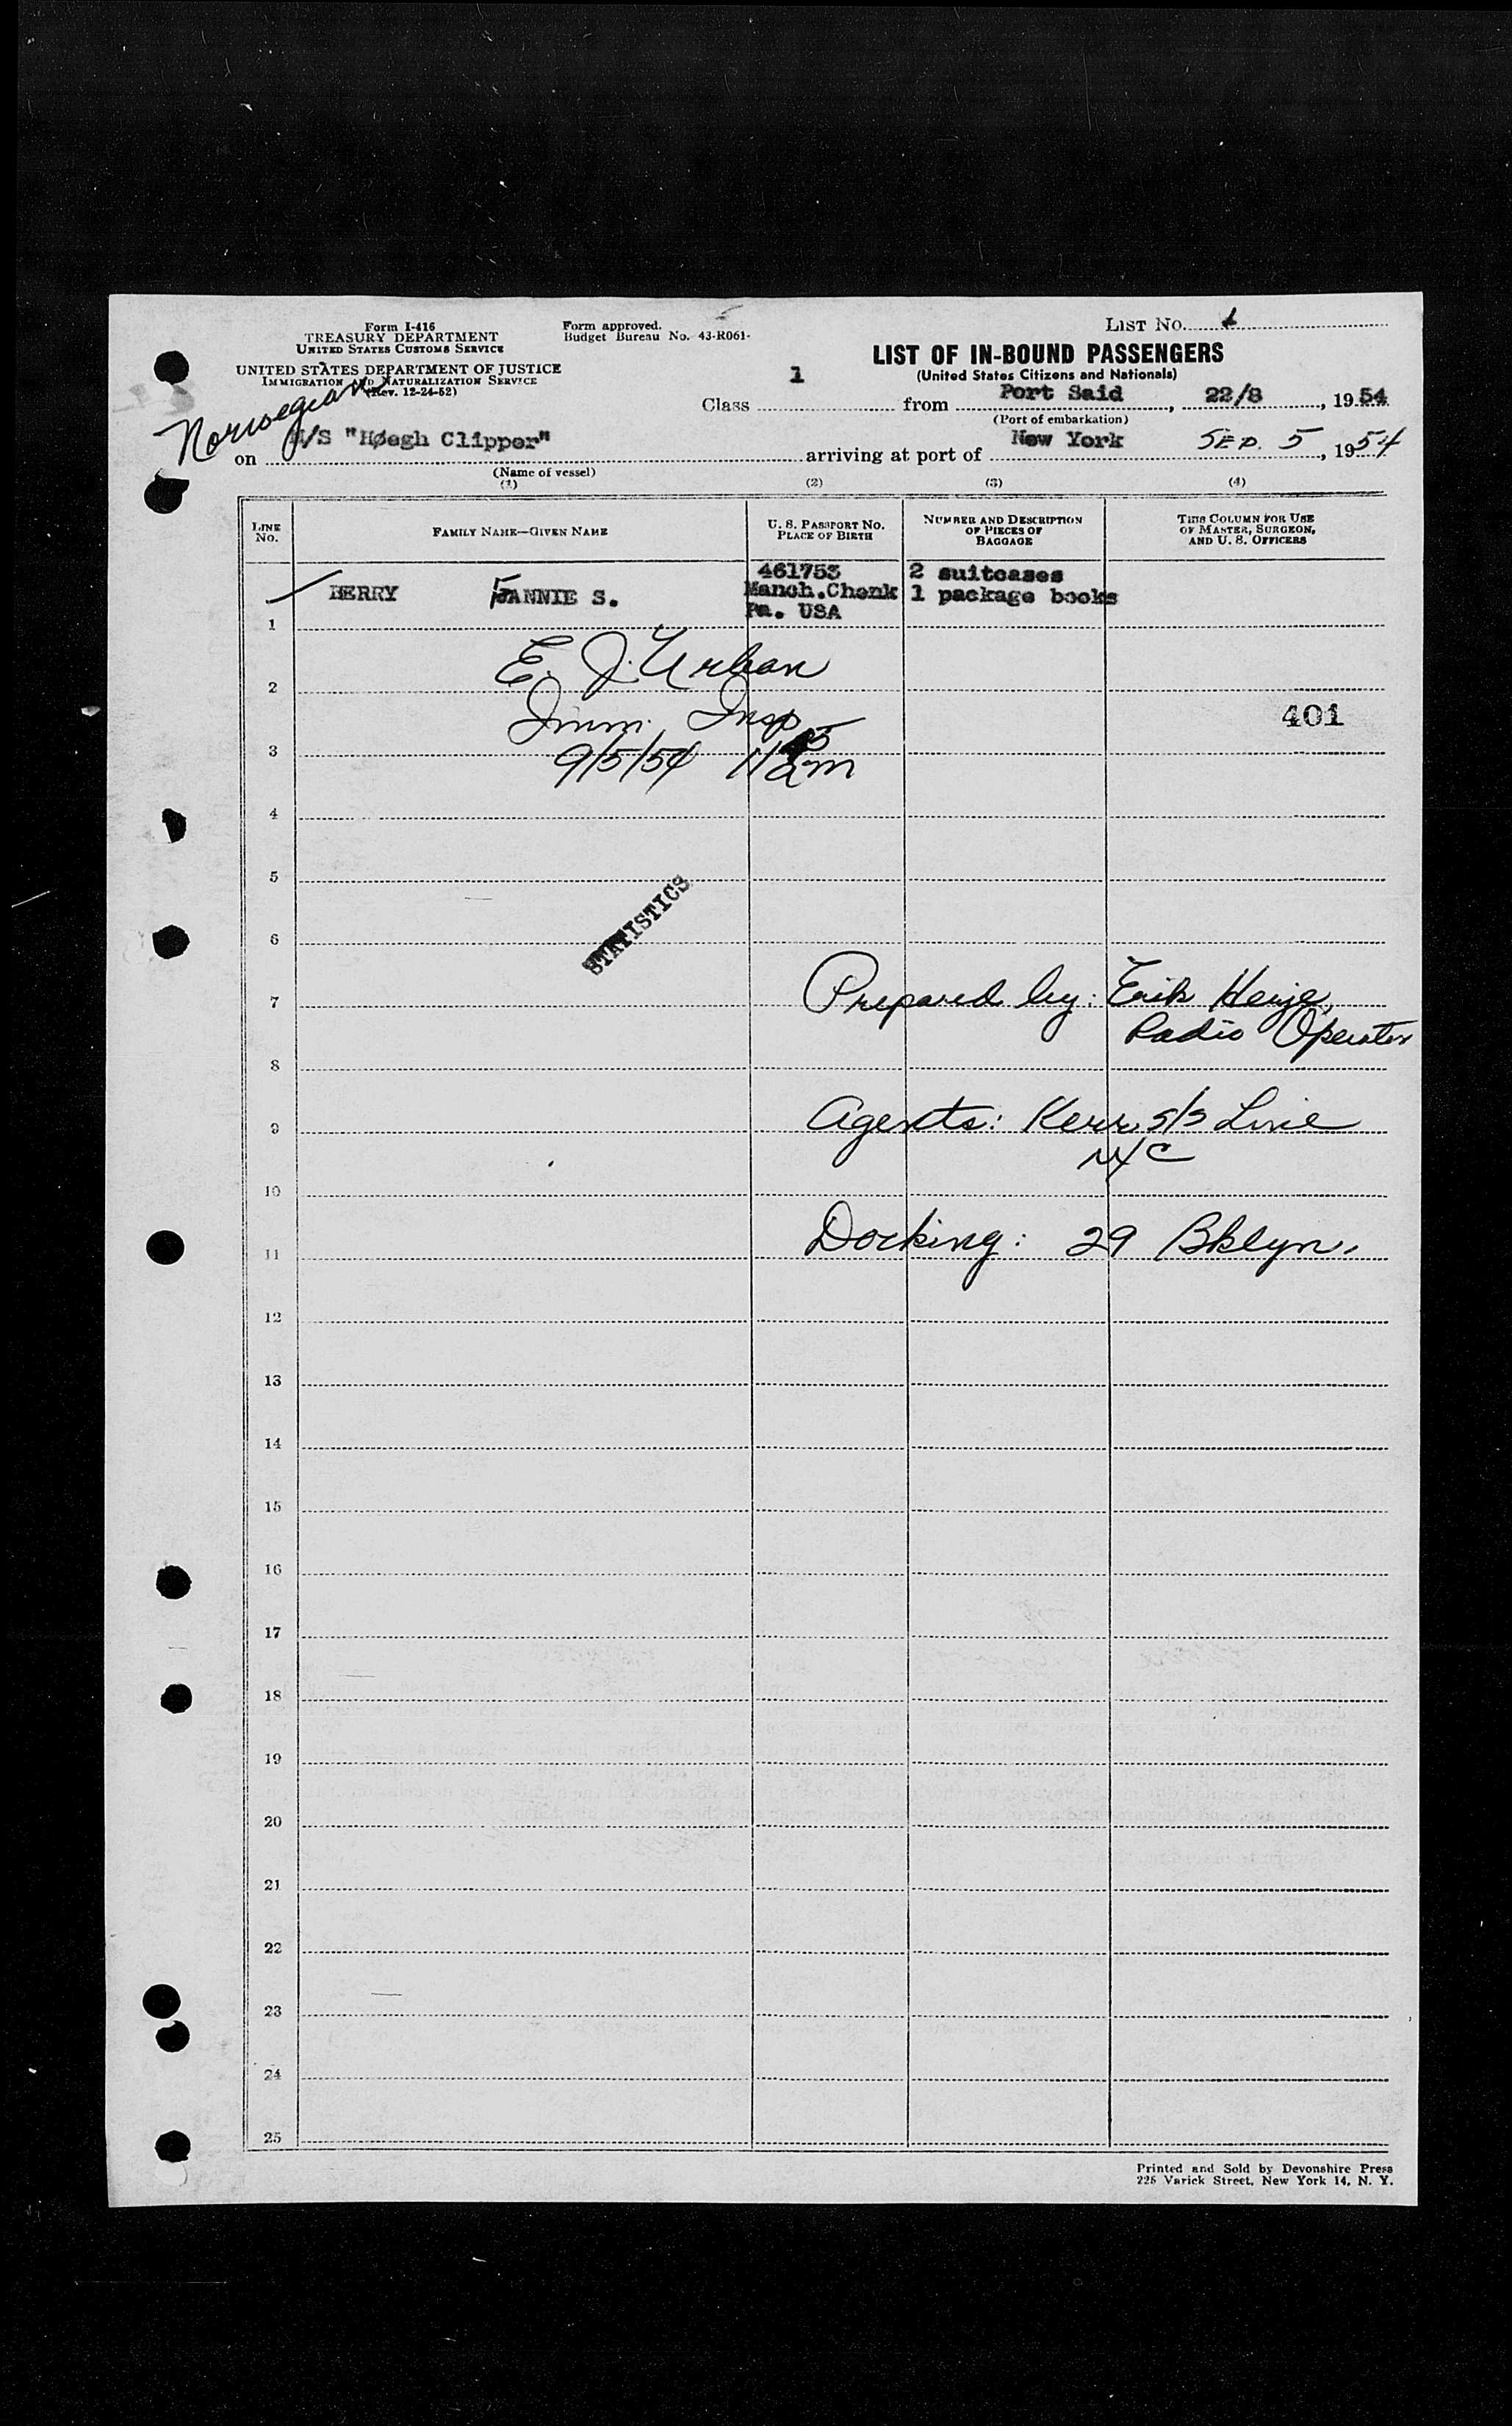 Form I-416
TREASURY DEPARTMENT
UNITED STATES CUSTOMS SERVICE
UNITED STATES DEPARTMENT OF JUSTICE
IMMIGRATION AND NATURALIZATION SERVICE
(Rev. 12-24-52)
Form approved.
Budget Bureau No. 43-R061-
LIST No. 1
LIST OF IN-BOUND PASSENGERS
(United States Citizens and Nationals)
Class 1 from Port Said, 22/8, 1954
(Port of embarkation)
Norwegian
on M/S "Høegh Clipper" arriving at port of New York SEP. 5, 1954
(Name of vessel)
(1) (2) (3) (4)
LINE No. FAMILY NAME—GIVEN NAME U. S. PASSPORT NO. PLACE OF BIRTH NUMBER AND DESCRIPTION OF PIECES OF BAGGAGE THIS COLUMN FOR USE OF MASTER, SURGEON, AND U. S. OFFICERS
461753 2 suitcases
BERRY FANNIE S. Manch.Chonk 1 package books
Pa. USA
1
E. J. Urban
2
Imm. Insp. 401
3
9/5/54 11 15 am
4
5
STATISTICS
6
7 Prepared by: Erik
Radio Operator
8
9 Agents: Kerr S/S Line
NYC
10
11 Docking: 29 Bklyn.
12
13
14
15
16
17
18
19
20
21
22
23
24
25
Printed and Sold by Devonshire Press
225 Varick Street, New York 14, N. Y.